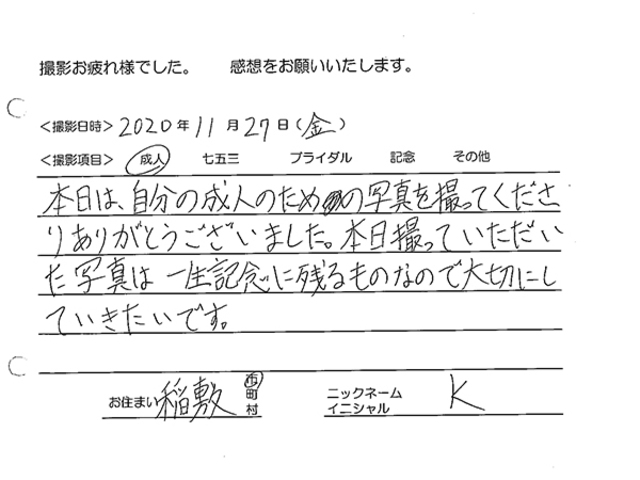 撮影お疲れ様でした。 感想をお願いいたします。
<撮影日時> 2020年 11月 27日(金)
<撮影項目> 成人 七五三 ブライダル 記念 その他
本日は、自分の成人のための写真を撮ってくださ
りありがとうございました。本日撮っていただい
た写真は一生記念に残るものなので大切にし
ていきたいです。
お住まい 稲敷 市 町 村 ニックネーム イニシャル K